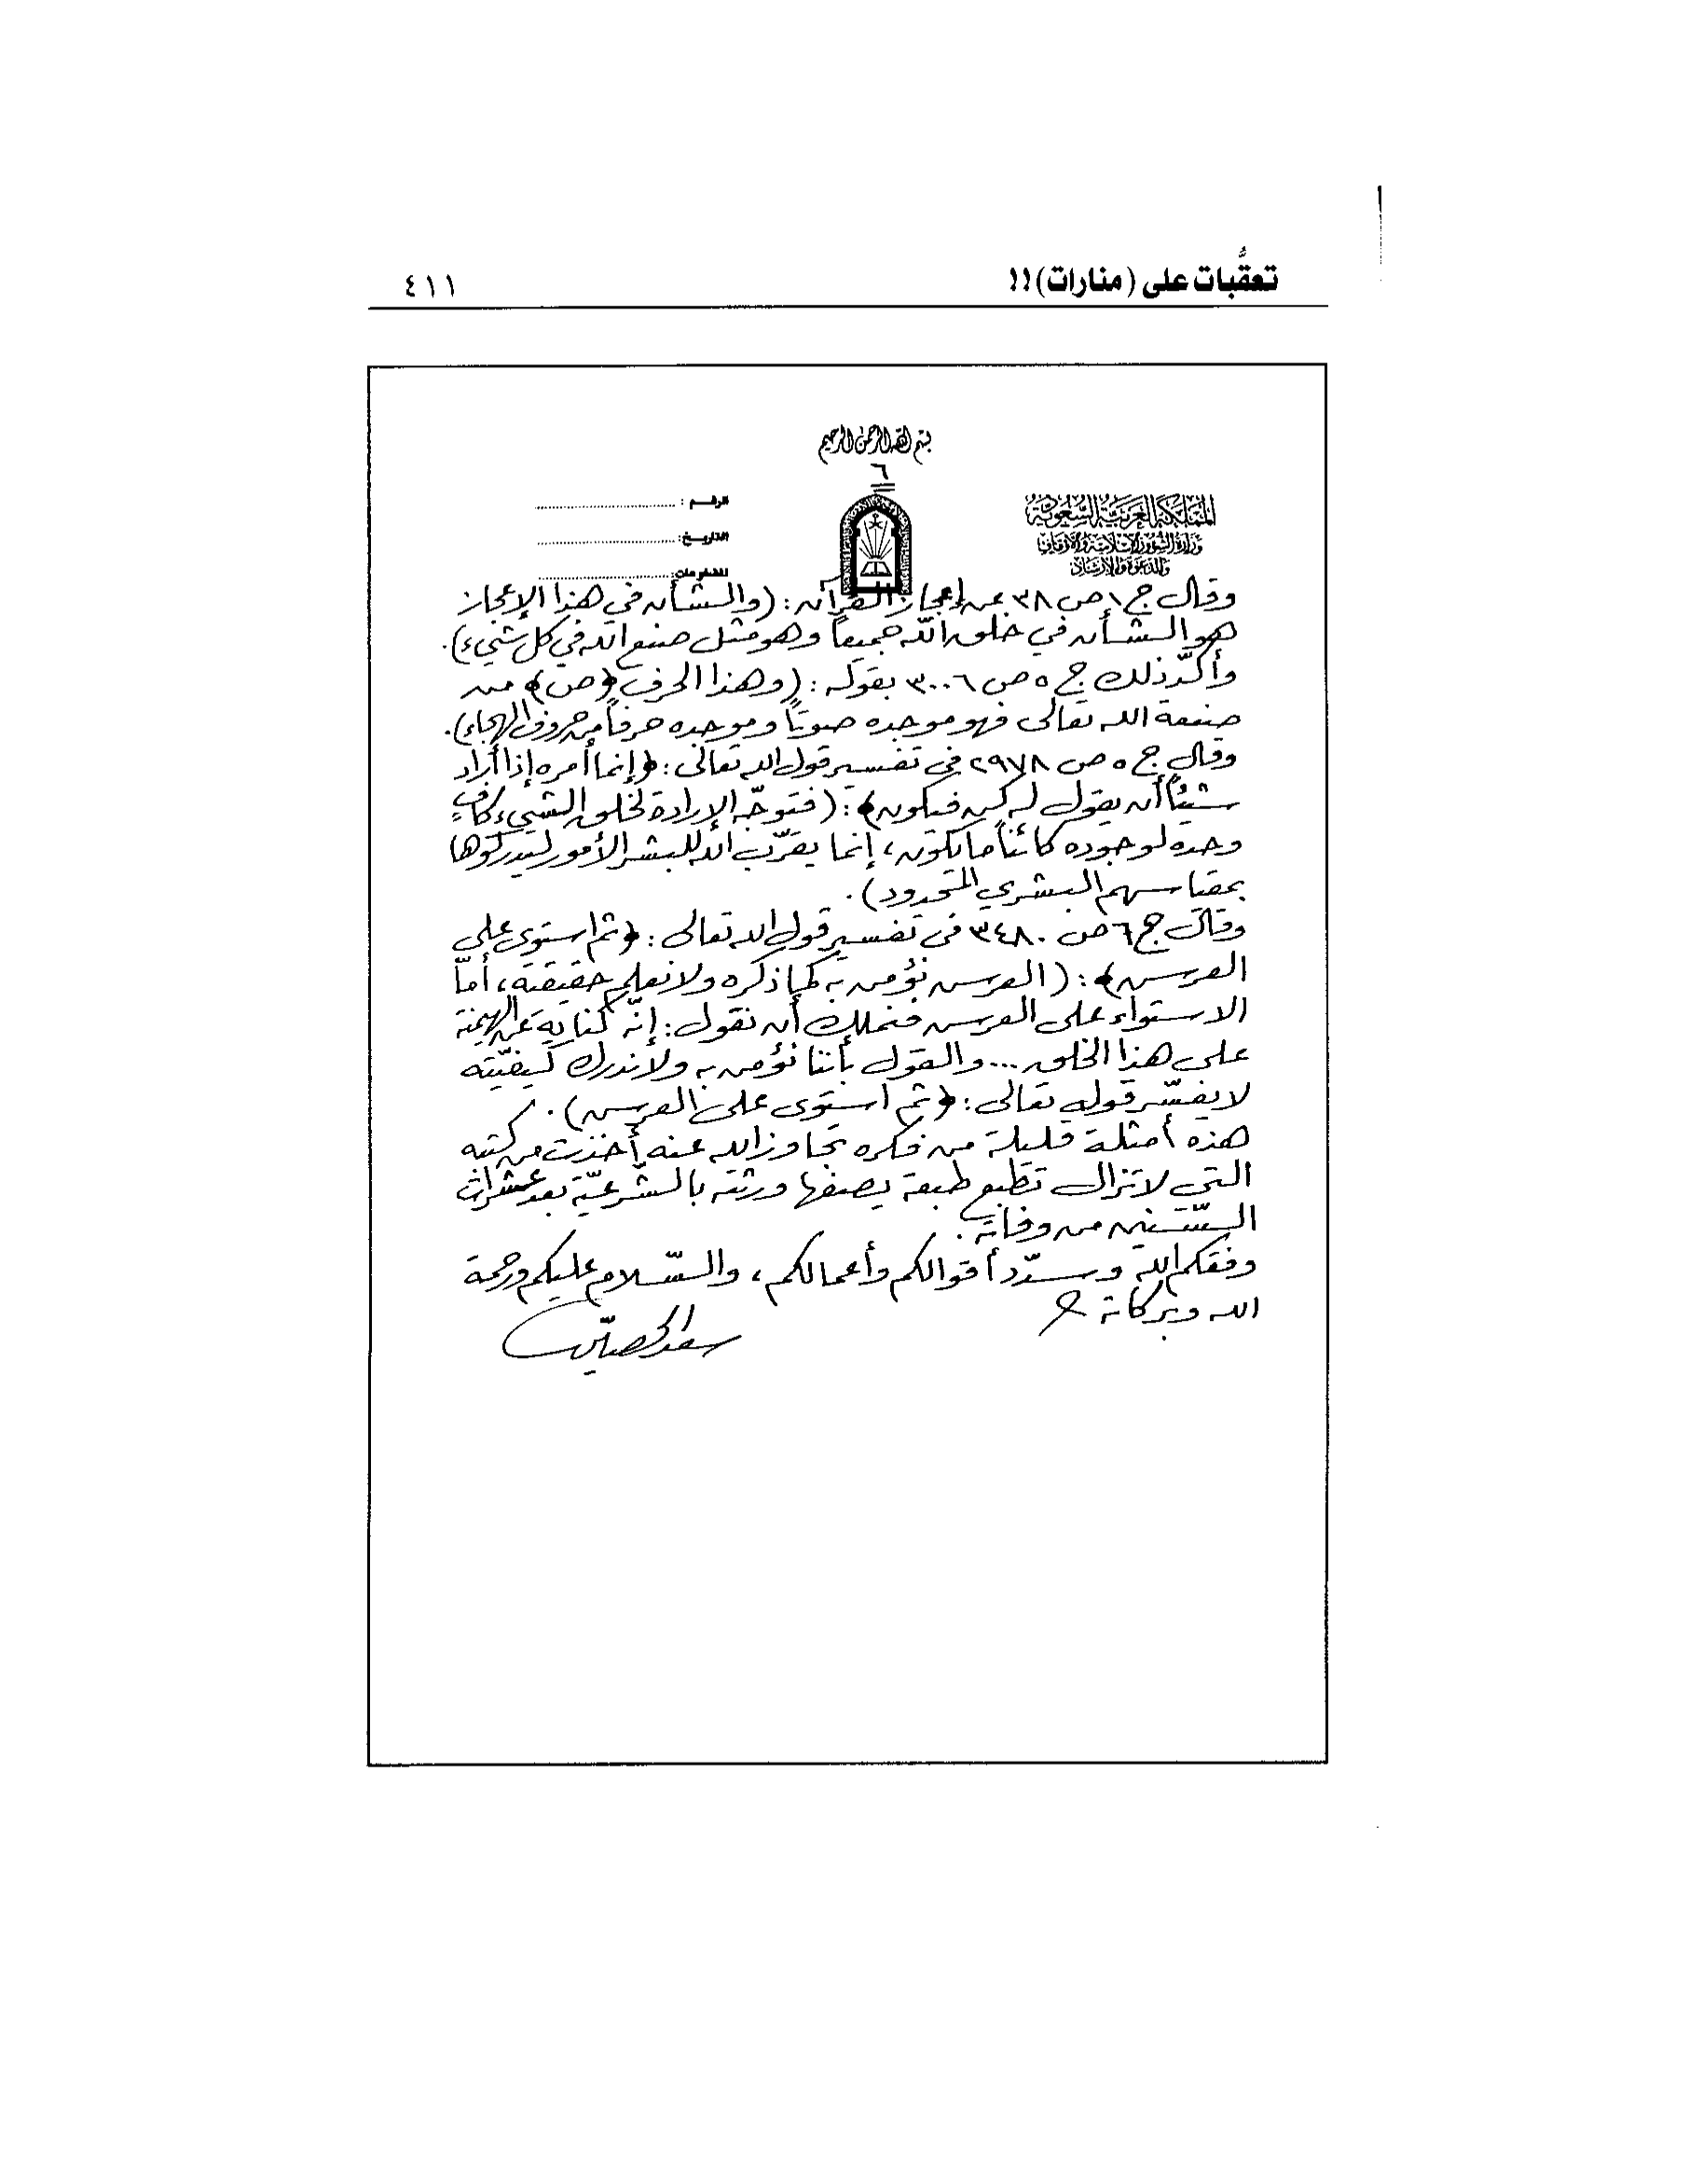 تعقُّبات على (منارات)!!
٤١١
بسم الله الرحمن الرحيم
٦
المملكة العربية السعودية
وزارة الشؤون الإسلامية والأوقاف
والدعوة والإرشاد
الرقم :
التاريخ :
المشفوعات :
وقال ج١ ص ٣٨ عن إعجاز القرآن : (والشأن في هذا الإعجاز
هو الشأن في خلق الله جميعاً وهو مثل صنع الله في كل شيء).
وأكّد ذلك ج ٥ ص ٣٠٠٦ بقوله : (وهذا الحرف ﴿ص﴾ من
صنعة الله تعالى فهو موجده صوتاً وموجده حرفاً من حروف الهجاء).
وقال ج ٥ ص ٢٩٧٨ في تفسير قول الله تعالى : ﴿إنما أمره إذا أراد
شيئاً أن يقول له كن فيكون﴾ : (فتوجّه الإرادة لخلق الشيء كافٍ
وحده لوجوده كائناً ما يكون ، إنما يقرّب الله للبشر الأمور ليدركوها
بمقياسهم البشري المحدود) .
وقال ج ٦ ص ٣٤٨٠ في تفسير قول الله تعالى : ﴿ثم استوى على
العرش﴾ : (العرش نؤمن به كما ذكره ولا نعلم حقيقته ، أمّا
الاستواء على العرش فنملك أن نقول : إنّه كناية عن الهيمنة
على هذا الخلق ... والقول بأننا نؤمن به ولا ندرك كيفيّته
لا يفسّر قوله تعالى : ﴿ثم استوى على العرش) .
هذه أمثلة قليلة من فكره تجاوز الله عنه أُخذت من كتبه
التي لا تزال تطبع طبعة يصفها ورثته بالشّرعيّة بعد عشرات
السّنين من وفاته .
وفقكم الله وسدّد أقوالكم وأعمالكم ، والسّلام عليكم ورحمة
الله وبركاته
سعد الحصيّن